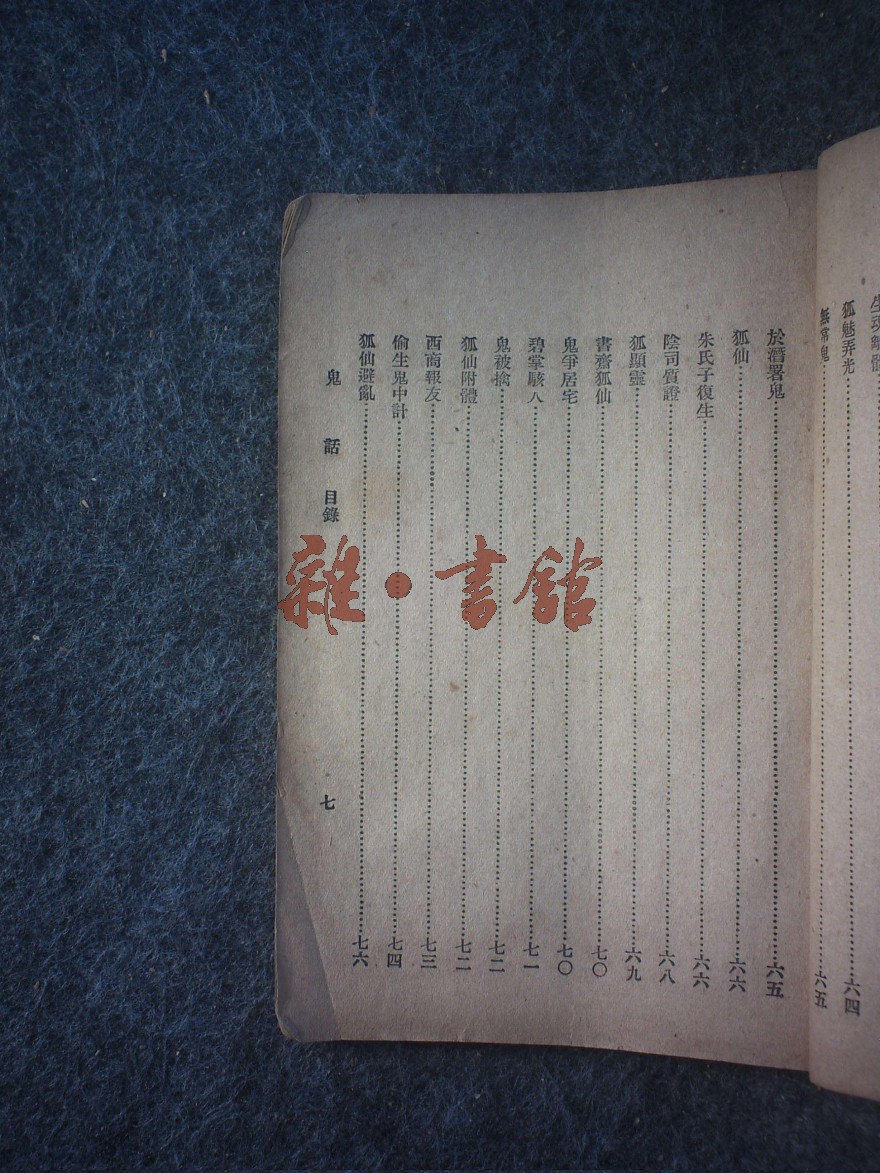 狐魅弄光…六四
無常鬼…六五
於潛署鬼…六五
狐仙…六六
朱氏子復生…六六
陰司質證…六八
狐顯靈…六九
書齋狐仙…七〇
鬼爭居宅…七〇
碧掌駭人…七一
鬼被擒…七二
狐仙附體…七二
西商報友…七三
偷生鬼中計…七四
狐仙避亂…七六
鬼話 目錄 七
雜·書館